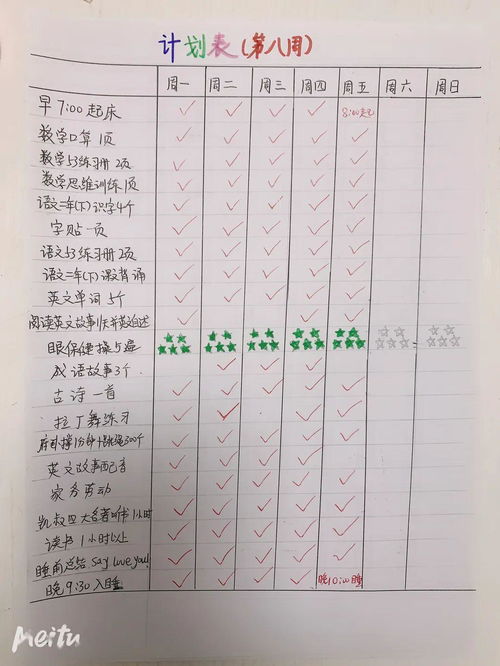 计划表(第八周)
周一 周二 周三 周四 周五 周六 周日
早7:00起床 8:00起床
数学口算1页
数学53练习册2页
数学思维训练1页
语文二年(下)识字4个
字贴一页
语文53练习册2页
语文二年(下)课文背诵
英文单词5个
阅读英文故事1天并英文自述
眼保健操5遍
成语故事3个
古诗一首
拉丁舞练习
1分钟+跳绳300个
英文故事配音
家务劳动
凯叔四大名著听书1小时
读书1小时以上
睡前总结 say love you!
晚9:30入睡 晚10:00睡
Meitu